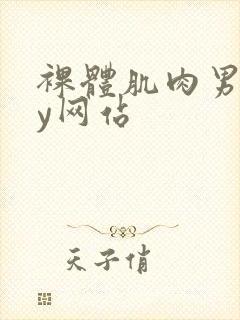 裸體肌肉男
y网佔
天子俏